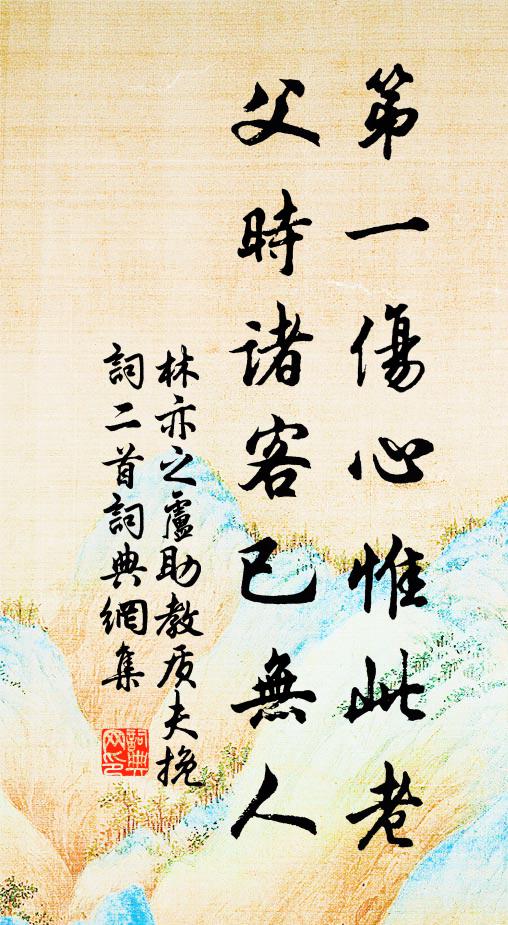 第一傷心惟此老
父時諸客已無人
林亦之盧助教质夫挽
詞二首詞典網集
詞典網印